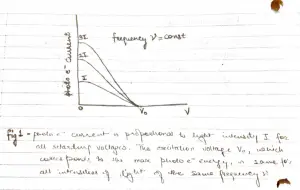 photo e⁻ current
3I
2I
I
frequency ν = const
V₀
V
fig 1 - photo e⁻ current is proportional to light intensity I for
all retarding voltages. The excitation voltage V₀, which
corresponds to the max photo e⁻ energy, is same for
all intensities of light of the same frequency ν